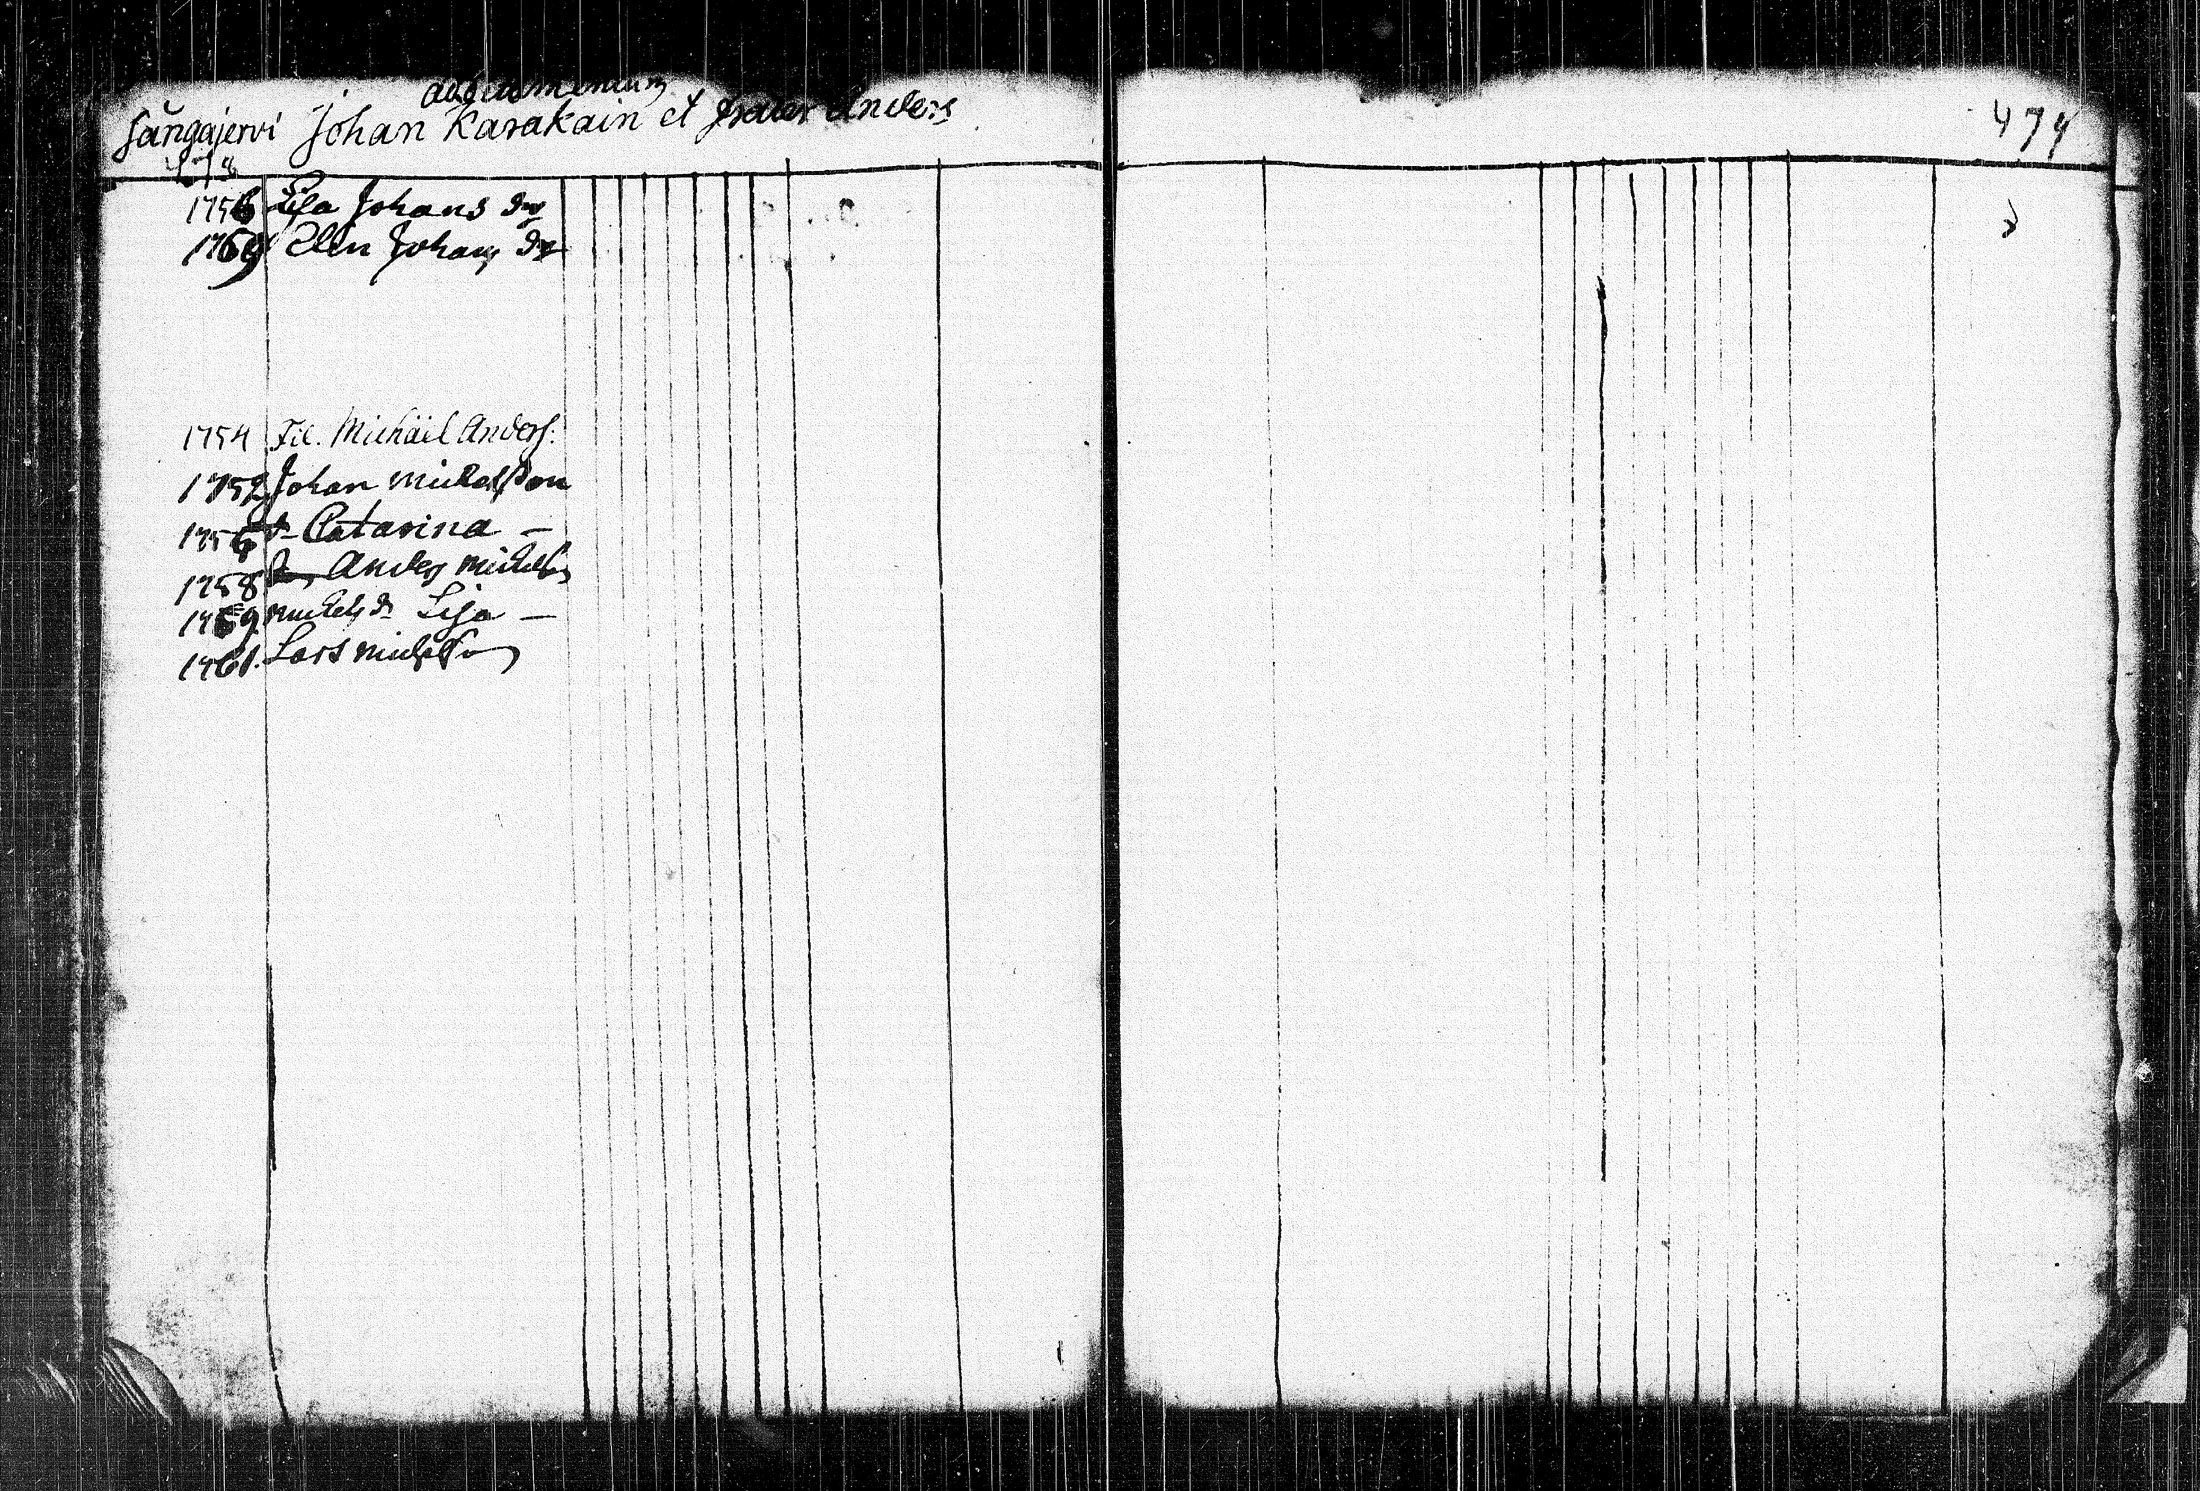 augmentum
Sångajervi Johan Karakain et frater Anders
479
478
1756 Lisa Johans dr
1769 Elin Johans dr
1754 Fil. Michäel Anders:
1752 Johan Mickelsson
1756 dr Catarina —
1758 Anders Mickelss
1759 Mickels dr Lisa —
1761. Lars Mickelsson